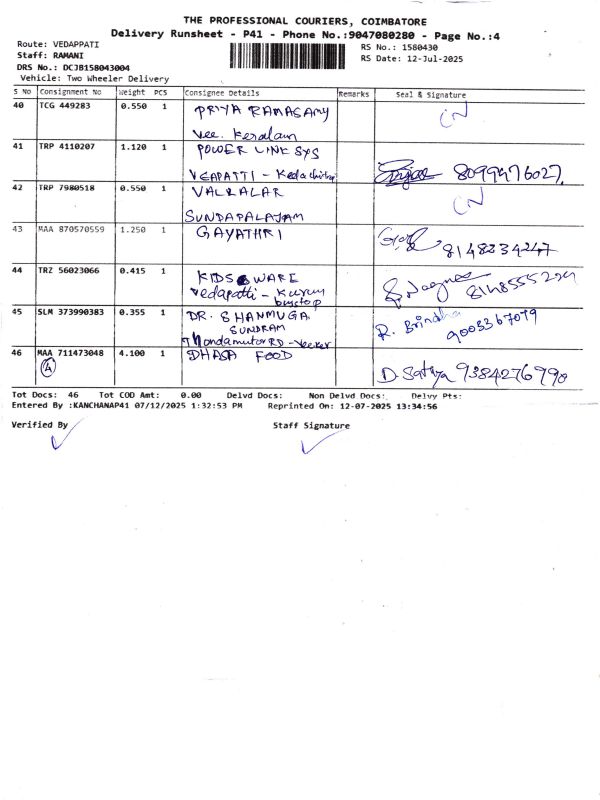 THE PROFESSIONAL COURIERS, COIMBATORE
Delivery Runsheet - P41 - Phone No.:9047080280 - Page No.:4
Route: VEDAPPATI
Staff: RAMANI
DRS No.: DCJB158043004
Vehicle: Two Wheeler Delivery
RS No.: 1580430
RS Date: 12-Jul-2025
S No Consignment No Weight PCS Consignee Details Remarks Seal & Signature
40 TCG 449283 0.550 1 PRIYA RAMASAMY
Vee. Keralam
41 TRP 4110207 1.120 1 POWER LINK SYS
VEAPATTI - 8099576027
42 TRP 7980518 0.550 1
SUNDAPALAYAM
43 MAA 870570559 1.250 1 GAYATHRI 8148234247
44 TRZ 56023066 0.415 1 KIDS WARE
Vedapatti - Kurum
busstop
45 SLM 373990383 0.355 1 DR. SHANMUGA R. Brindha
SUNDRAM 9003367079
46 MAA 711473048 4.100 1 DHASA FOOD
4 D. Sathya 9384276990
Tot Docs: 46 Tot COD Amt: 0.00 Delvd Docs: Non Delvd Docs: Delvy Pts:
Entered By :KANCHANAP41 07/12/2025 1:32:53 PM Reprinted On: 12-07-2025 13:34:56
Verified By Staff Signature